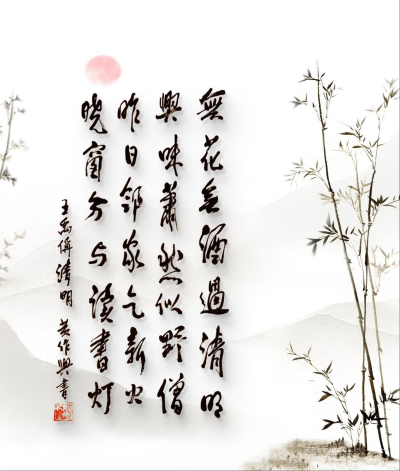 無花無酒過清明
興味蕭然似野僧
昨日邻家乞新火
晓窗分与读書灯
王禹偁清明 黄作興書